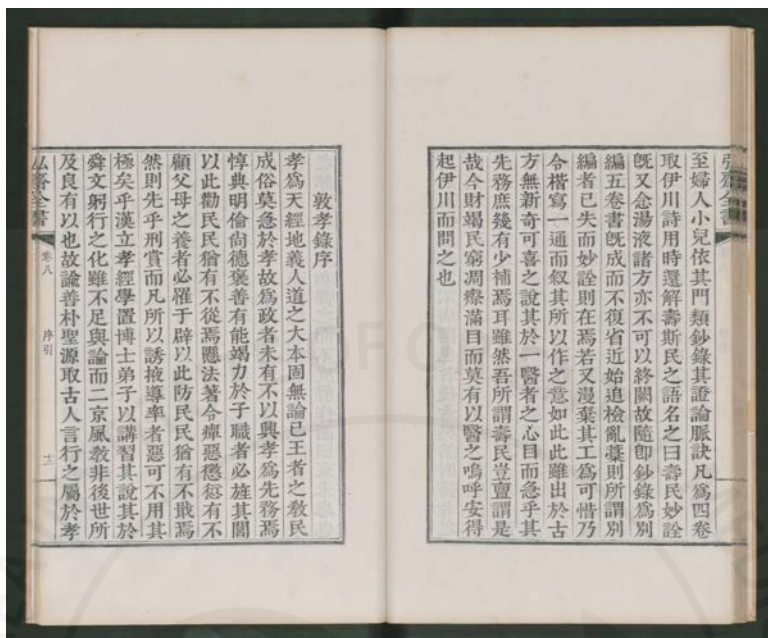 弘齋全書
至婦人小兒依其門類鈔錄其證論脈訣凡爲四卷
取伊川詩用時還解壽斯民之語名之曰壽民妙詮
既又念湯液諸方亦不可以終闕故隨卽鈔錄爲別
編五卷書旣成而不復省近始追檢亂藁則所謂別
編者已失而妙詮則在焉若又漫棄其工爲可惜乃
令楷寫一通而叙其所以作之意如此此雖出於古
方無新奇可喜之說其於一醫者之心目而急乎其
先務庶幾有少補焉耳雖然吾所謂壽民豈亶謂是
哉今財竭民窮凋瘵滿目而莫有以醫之嗚呼安得
起伊川而問之也
敦孝錄序
孝爲天經地義人道之大本固無論已王者之敎民
成俗莫急於孝故爲政者未有不以興孝爲先務焉
惇典明倫尙德褒善有能竭力於子職者必旌其閭
以此勸民民猶有不從焉懸法著令癉惡懲愆有不
顧父母之養者必罹于辟以此防民民猶有不戢焉
然則先乎刑賞而凡所以誘掖導率者惡可不用其
極矣乎漢立孝經學置博士弟子以講習其說其於
舜文躬行之化雖不足與論而二京風敎非後世所
及良有以也故論善朴聖源取古人言行之屬於孝
弘齋全書
卷八
序引
十二